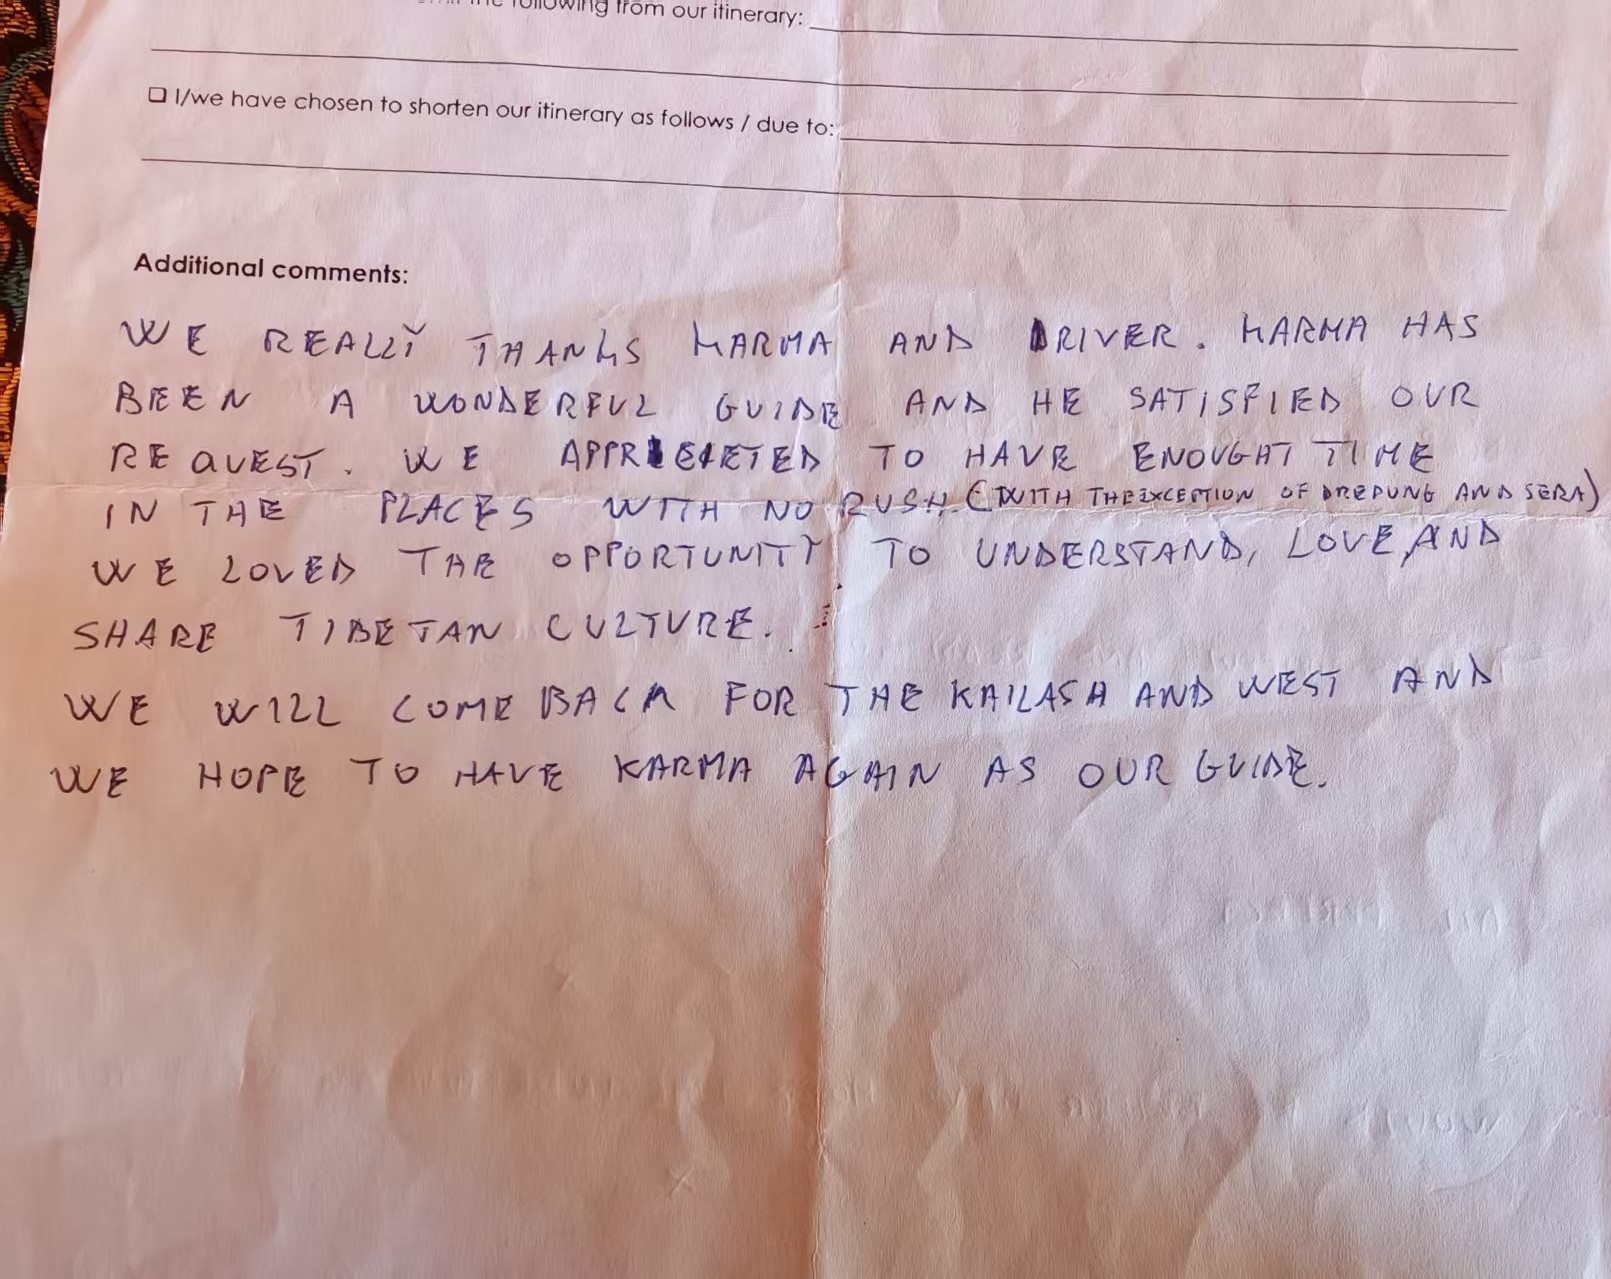 the following from our itinerary:
❑ I/we have chosen to shorten our itinerary as follows / due to:
Additional comments:
WE REALLY THANKS KARMA AND DRIVER. KARMA HAS
BEEN A WONDERFUL GUIDE AND HE SATISFIED OUR
REQUEST. WE APPRECIETED TO HAVE ENOUGHT TIME
IN THE PLACES WITH NO RUSH. (WITH THE EXCEPTION OF DREPUNG AND SERA)
WE LOVED THE OPPORTUNITY TO UNDERSTAND, LOVE, AND
SHARE TIBETAN CULTURE.
WE WILL COME BACK FOR THE KAILASH AND WEST AND
WE HOPE TO HAVE KARMA AGAIN AS OUR GUIDE.